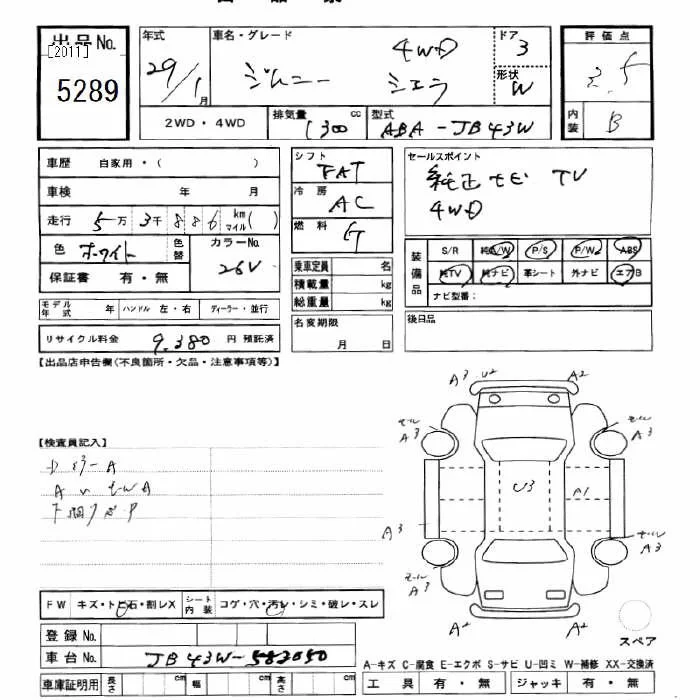 出品No.
[2011]
5289
年式
29/1月
車名・グレード
4WD
ジムニー シエラ
ドア
3
形状
W
評価点
3.5
内装
B
2WD・4WD
排気量
1300 cc
型式
ABA-JB43W
車歴 自家用・( )
車検 年 月
走行 5万3千886 km マイル( )
色 ホワイト 色替
カラーNo.
26V
保証書 有・無
モデル年式 年 ハンドル 左・右 ディーラー・並行
リサイクル料金 9,380 円 預託済
シフト
FAT
冷房
AC
燃料
G
乗車定員 名
積載量 kg
総重量 kg
名変期限
月 日
セールスポイント
純正ナビ TV
4WD
装備品
S/R 純A/W P/S P/W ABS
純TV 純ナビ 革シート 外ナビ エアB
ナビ型番:
後日品
【出品店申告欄(不良箇所・欠品・注意事項等)】
【検査員記入】
A3 U2 A2
モール A3
モール A3
U3 A1
A3
モール A3
モール A3
A2 A2
スペア
FW キズ・トビ石・割レX
シート内装 コゲ・穴・汚レ・シミ・破レ・スレ
登録No.
車台No. JB43W-582050
車庫証明用 長さ cm 幅 cm 高さ cm
A-キズ C-腐食 E-エクボ S-サビ U-凹ミ W-補修 XX-交換済
工具 有・無 ジャッキ 有・無